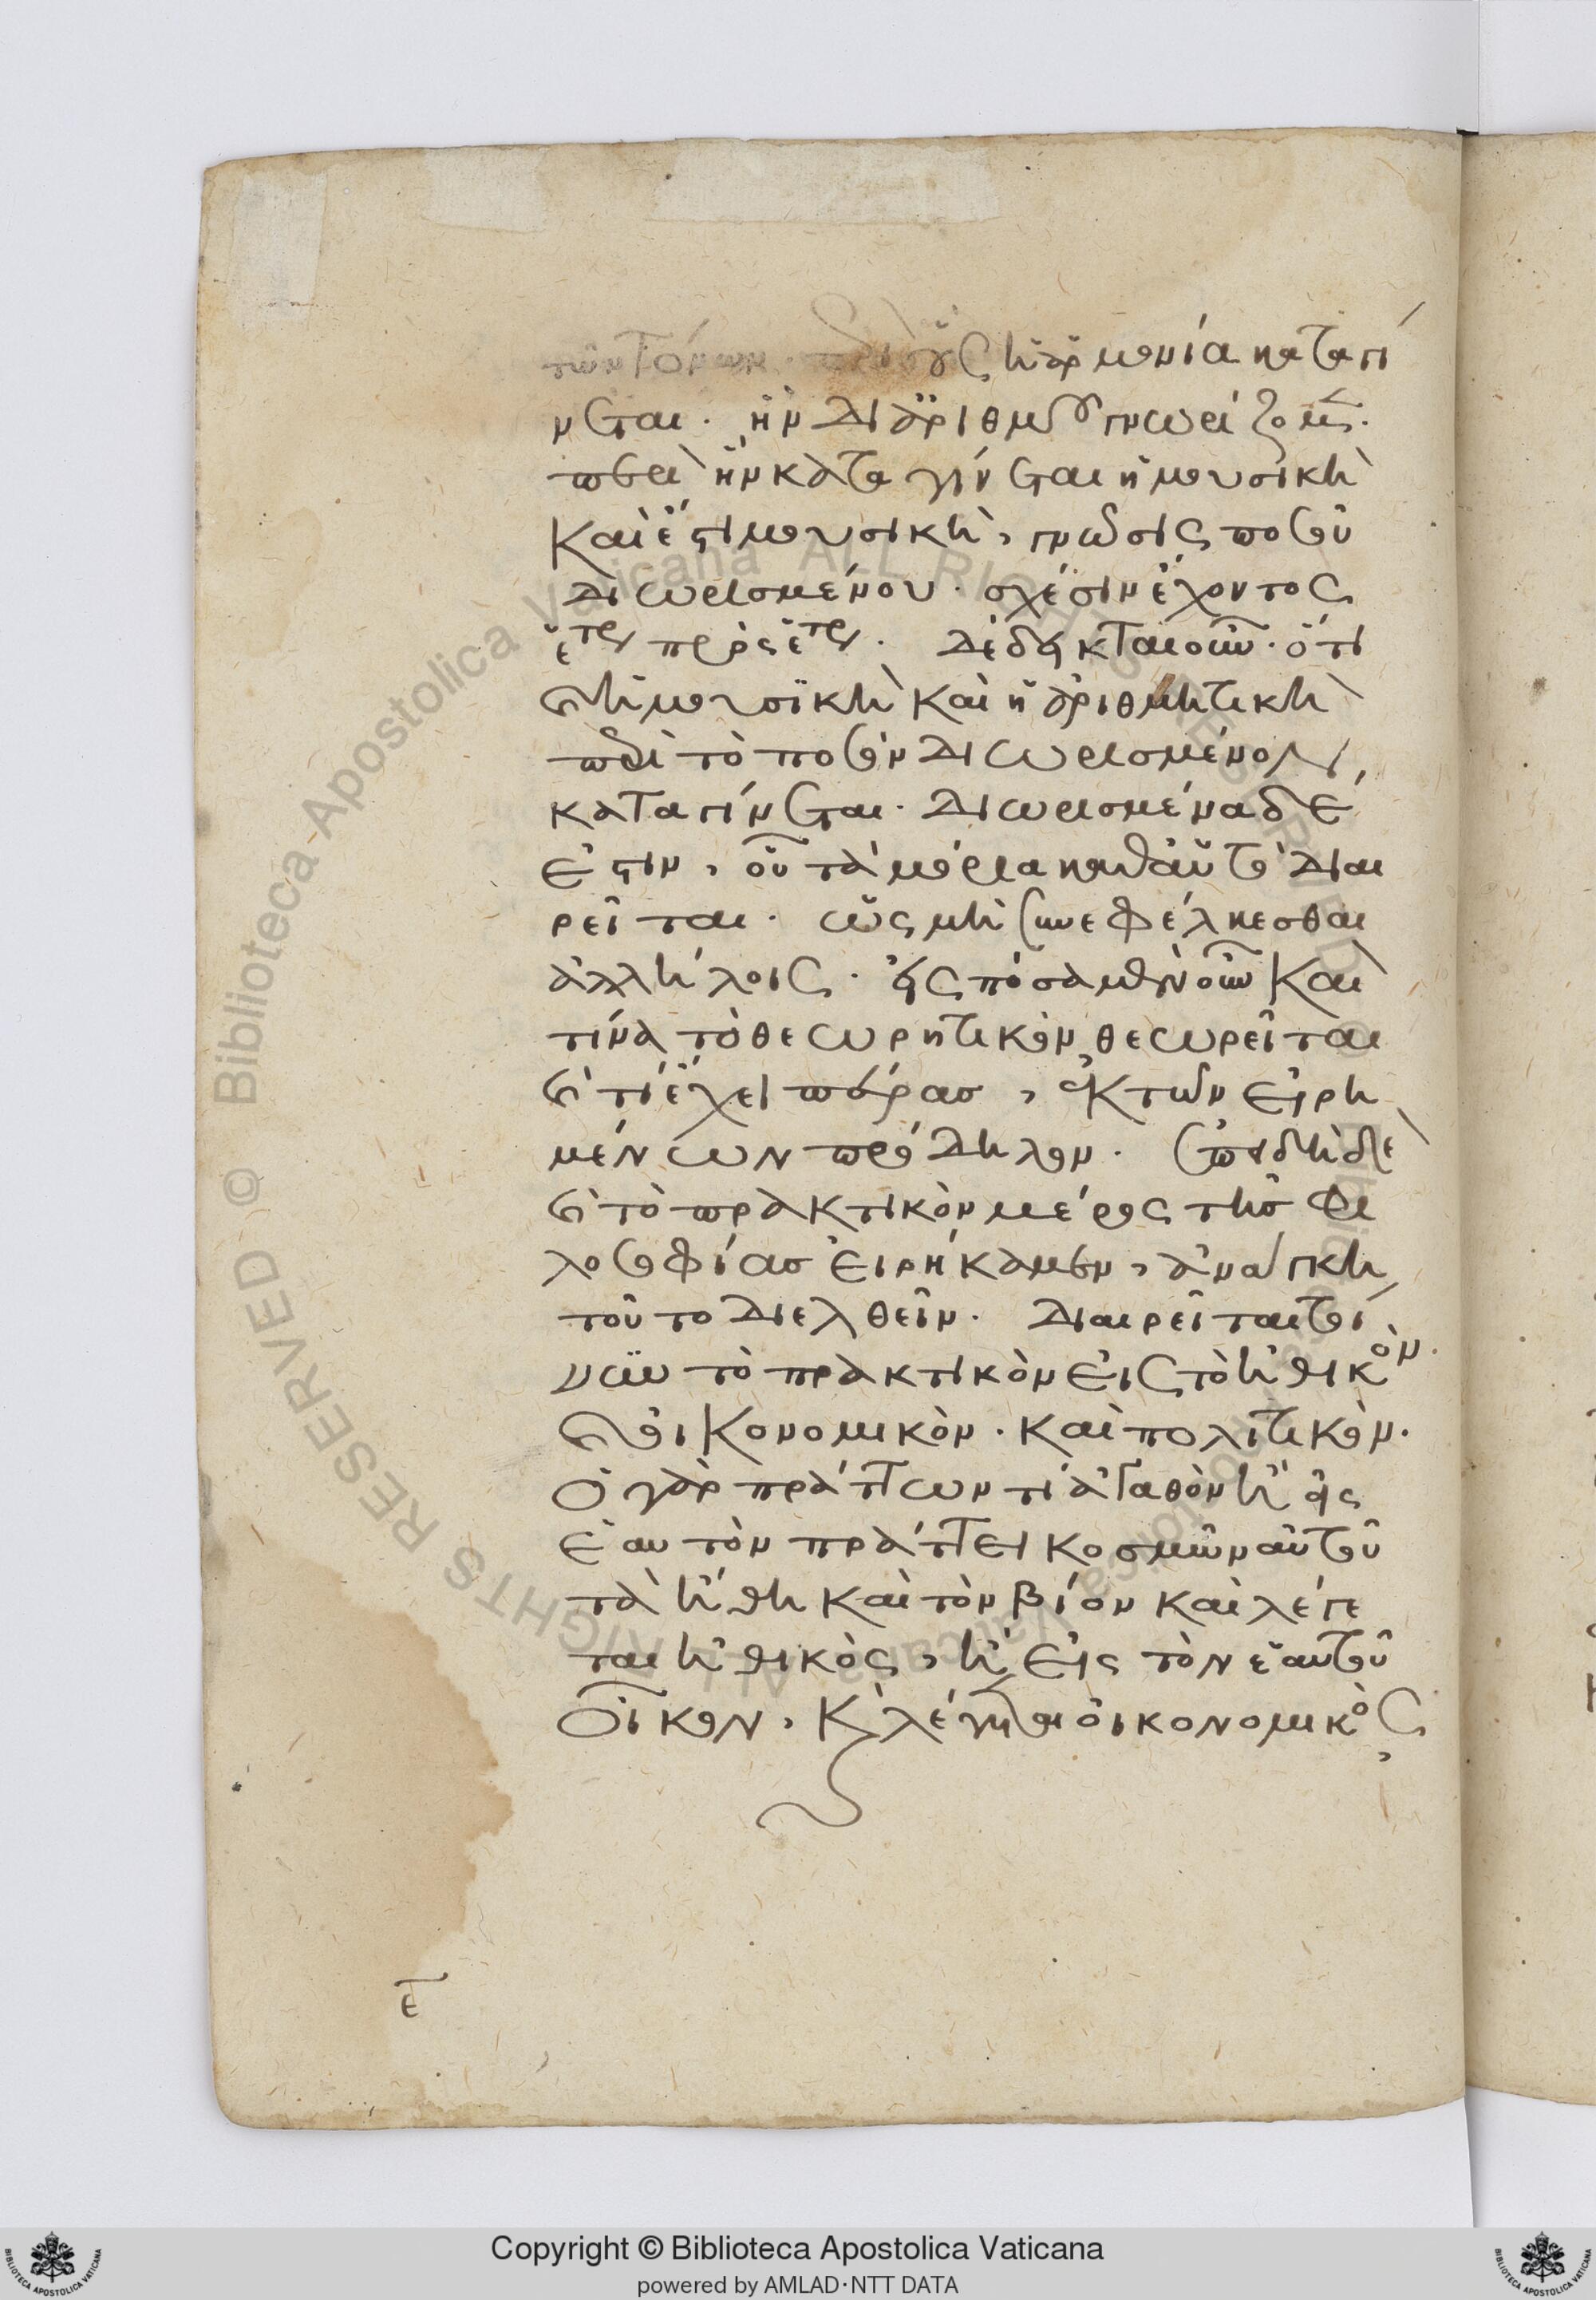 τῶν τόνων. περὶ οὓς ἡ ἁρμονία καταγί
νεται. ἣν δι ἀριθμοῦ γνωρίζομεν.
περὶ ἣν καταγίνεται ἡ μουσικὴ
καὶ ἔστι μουσικὴ, γνῶσις ποσοῦ
διωρισμένου. σχέσιν ἔχοντος
ἑτέρου πρὸς ἕτερον. δέδεικται οὖν. ὅτι
καὶ ἡ μουσικὴ καὶ ἡ ἀριθμητικὴ
περὶ τὸ ποσὸν διωρισμένον,
καταγίνεται. διωρισμένα δέ
ἐστιν, οὗ τὰ μόρια καθ αὑτὸ διαι
ρεῖται. ὡς μὴ συνεφέλκεσθαι
ἀλλήλοις. εἰς πόσα μὲν οὖν καὶ
τίνα τὸ θεωρητικὸν θεωρεῖται
καὶ τί ἔχει πέρας, ἐκ τῶν εἰρη
μένων πρόδηλον. ἐπειδὴ δὲ
καὶ τὸ πρακτικὸν μέρος τῆς φι
λοσοφίας εἰρήκαμεν, ἀνάγκη
τοῦτο διελθεῖν. διαιρεῖται τοί
νυν τὸ πρακτικὸν εἰς τὸ ἠθικὸν.
καὶ οἰκονομικὸν. καὶ πολιτικὸν.
ὁ γὰρ πράττων τι ἀγαθὸν ἢ εἰς
ἑαυτὸν πράττει κοσμῶν αὑτοῦ
τὰ ἤθη καὶ τὸν βίον καὶ λέγε
ται ἠθικὸς, ἢ εἰς τὸν ἑαυτοῦ
οἶκον, καὶ λέγεται οἰκονομικὸς,
ε
Copyright © Biblioteca Apostolica Vaticana
powered by AMLAD·NTT DATA
Biblioteca Apostolica Vaticana ALL RIGHTS RESERVED ©